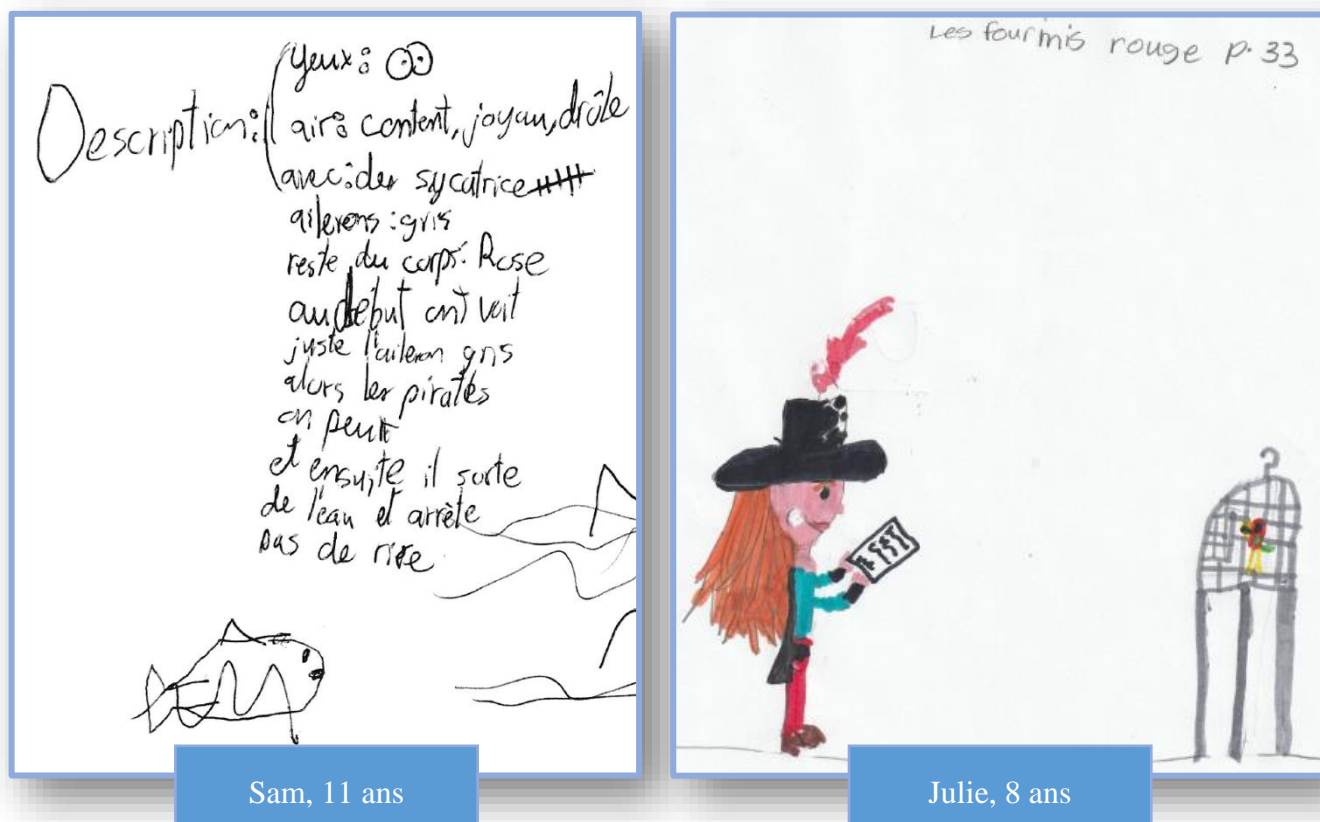 Description:
yeux:
air: content, joyau, drôle
avec: des sycatrice
ailerons: gris
reste du corps: Rose
au début ont voit
juste l'aileron gris
alors les pirates
on peur
et ensuite il sorte
de l'eau et arrête
pas de rire
Sam, 11 ans
Les fourmis rouge p. 33
Julie, 8 ans